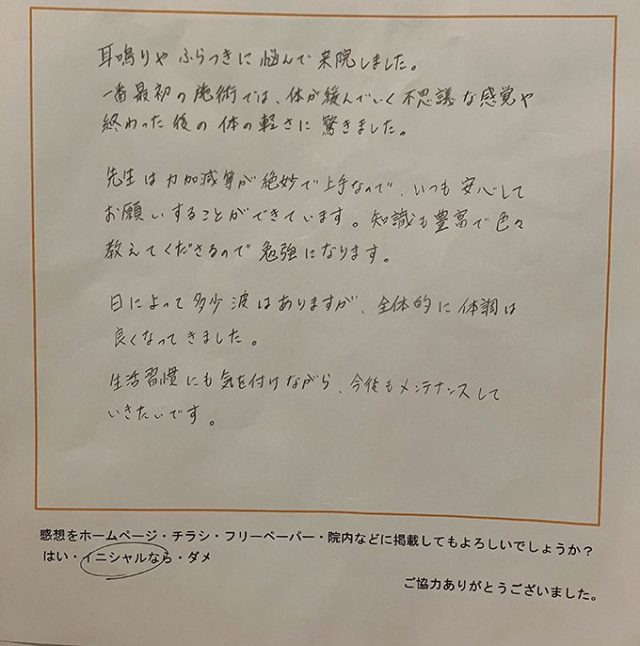 耳鳴りや ふらつきに 悩んで 来院しました。
一番最初の施術では、体が緩んでいく不思議な感覚や
終わった後の体の軽さに驚きました。
先生は力加減等が絶妙で上手なので、いつも安心して
お願いすることができています。知識も豊富で色々
教えてくださるので勉強になります。
日によって多少波はありますが、全体的に体調は
良くなってきました。
生活習慣にも気を付けながら、今後もメンテナンスして
いきたいです。
感想をホームページ・チラシ・フリーペーパー・院内などに掲載してもよろしいでしょうか？
はい・イニシャルなら・ダメ
ご協力ありがとうございました。